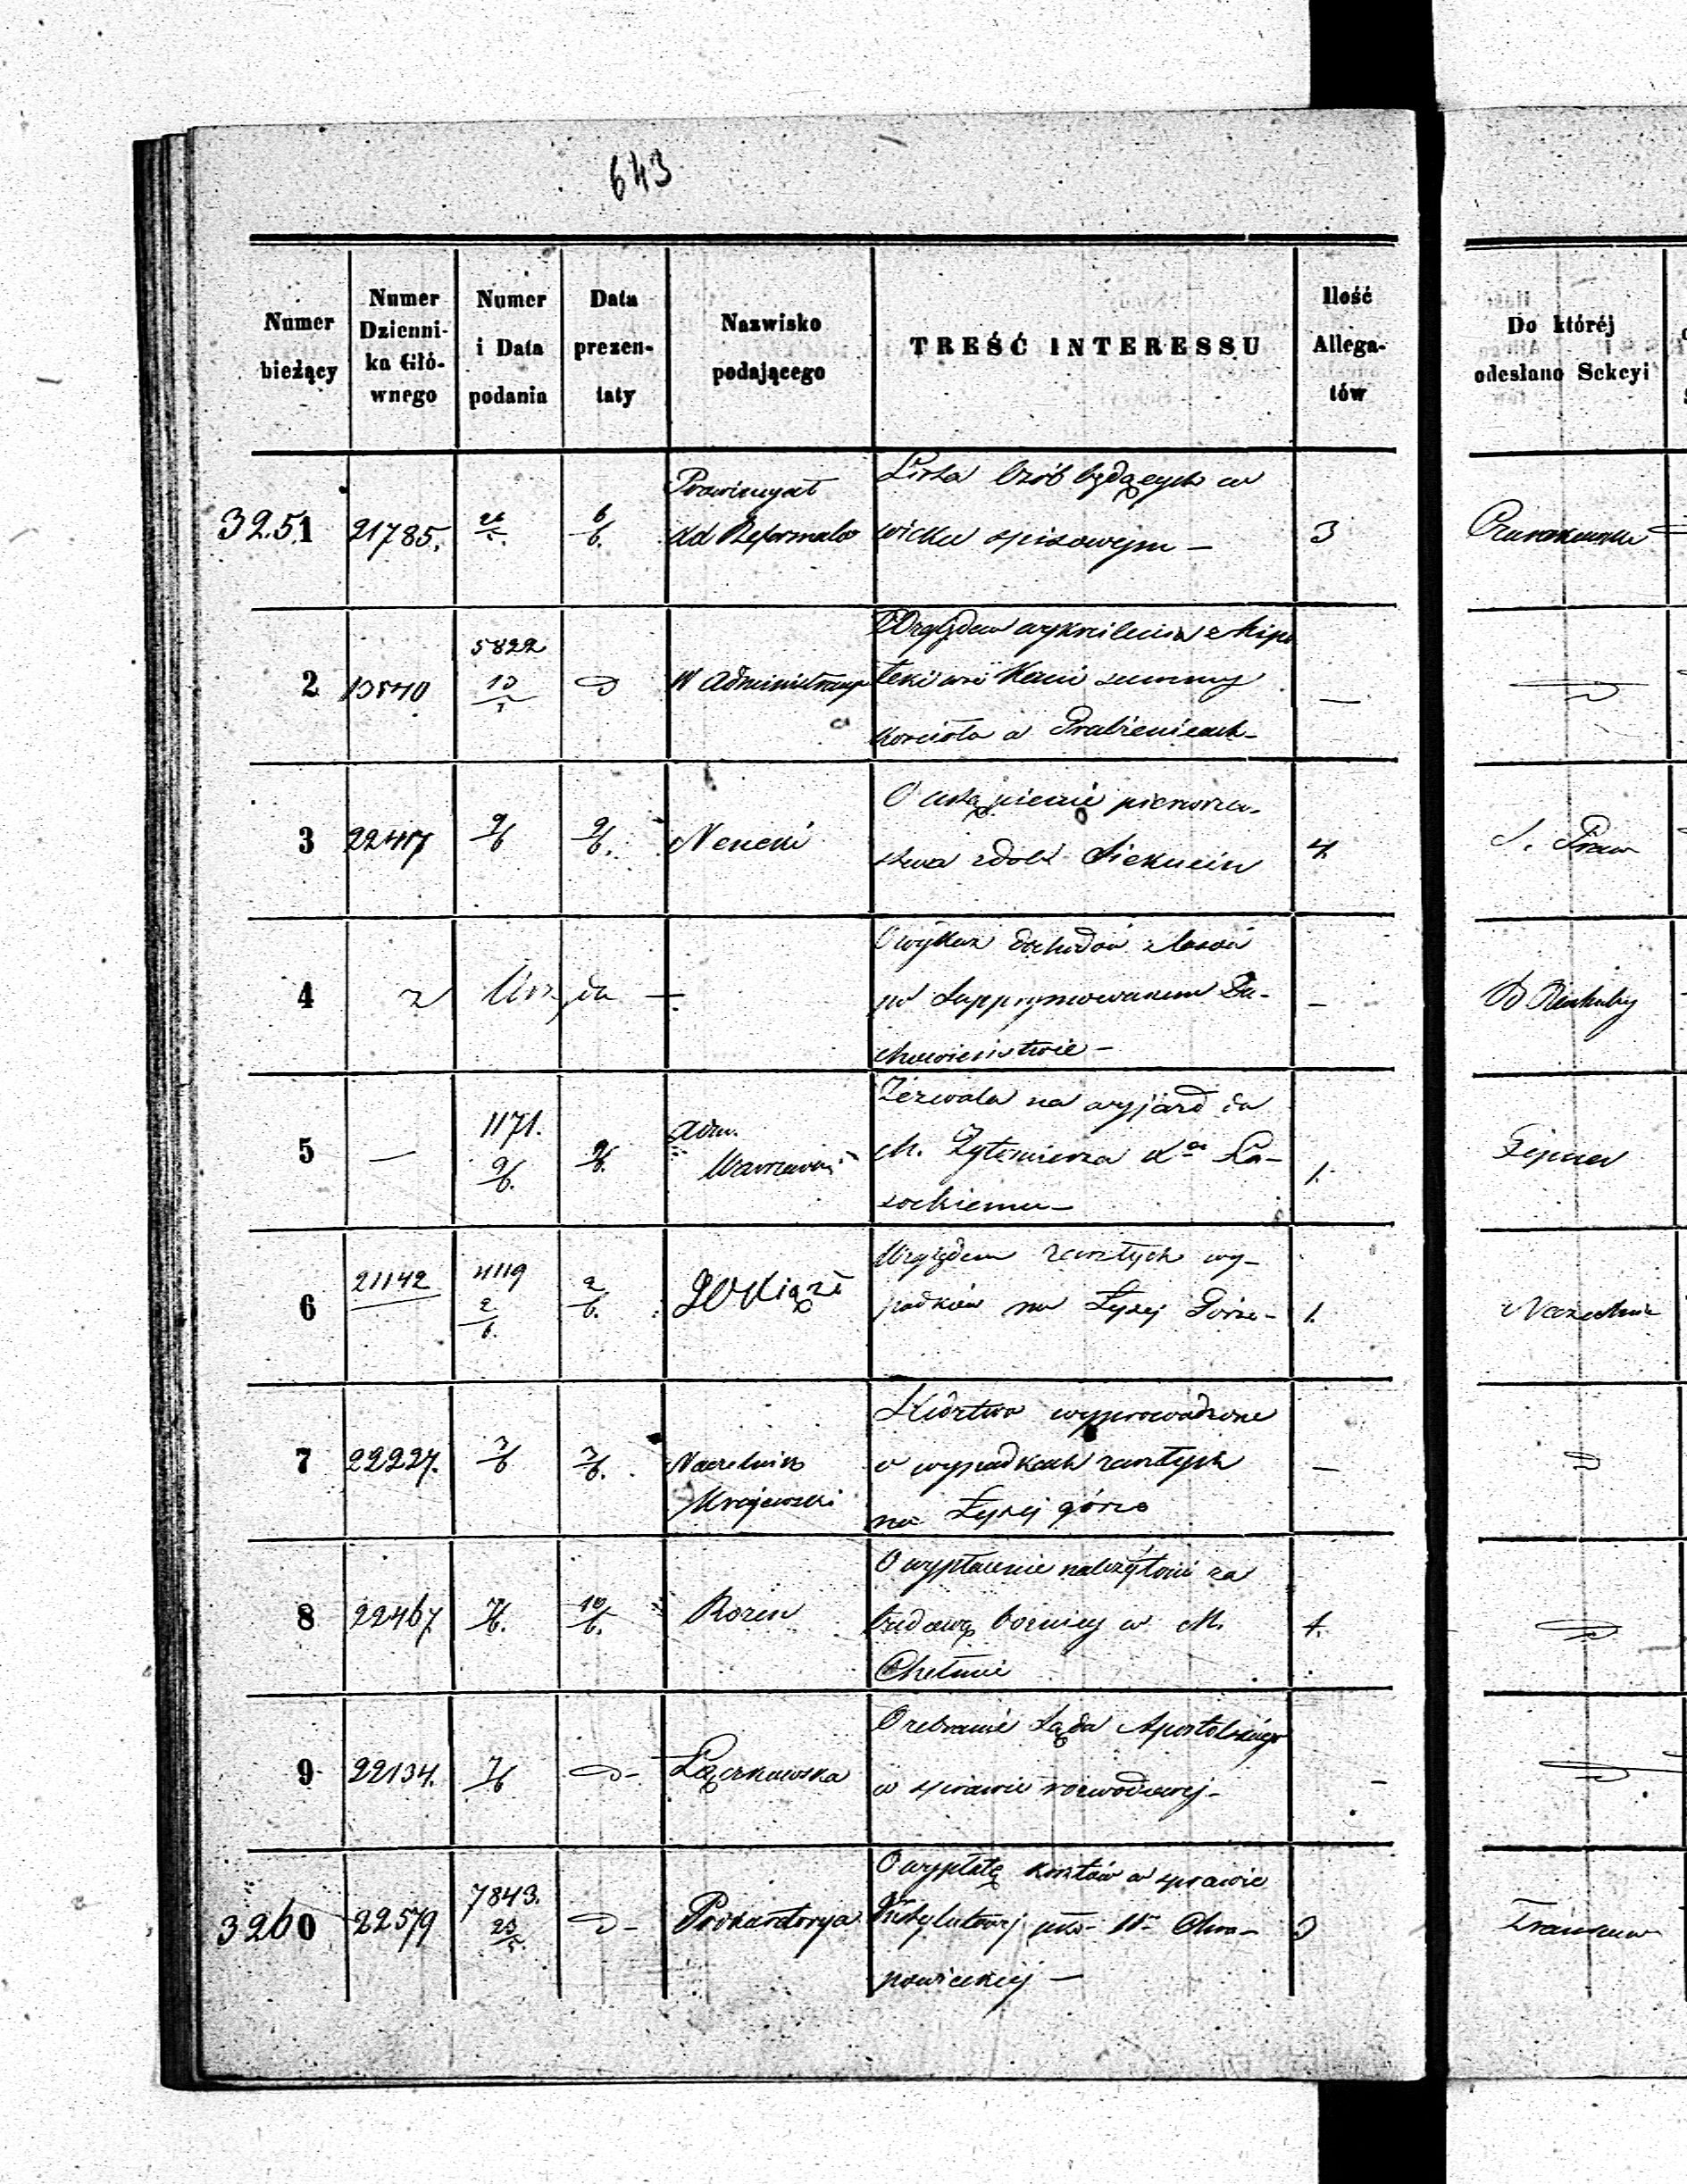 643
Numer bieżący
Numer Dziennika Głównego
Numer i Data podania
Data prezentaty
Nazwisko podającego
TREŚĆ INTERESSU
Ilość Allegatów
Do któréj odesłano Sekcyi
3251 21785. 26/5. 6/6. Prowincyał
XX Reformatów
Lista Osób będących w
wieku spisowym – 3
2 13540 5822
13/5 D W Administracyi
Względem wykreślenia z hipo
teki wsi Kanie summy
kościoła w Prabienicach – —
3 22417 9/6 9/6. Nencki
O ustąpienie pierwszeń-
stwa z dóbr Siekucin 4. S. Praw
4 z Urzędu —
O wykaz dochodów z lasów
po Supprymowanem Du-
chowieństwie – –
5 — 1171.
9/6. 9/6. Adm.
Warszawski
Zezwala na wyjazd do
M. Żytomierza Xdu La-
sockiemu – 1.
6 21142 4119
2/6. 2/6. JO Xiążę
Względem zaszłych wy-
padków na Łysej Górze – 1. Naczelnik
7 22227. 3/6 3/6. Naczelnik
Krajewski
Śledztwo wyprowadzone
o wypadkach zaszłych
na Łysej górze — D
8 22467. 7/6. 10/6. Rozen
O wypłacenie należytości za
budowę bożnicy w M.
Chełmie 1. D
9 22134. 7/6 D – Łączkowska
O zebranie Sądu Apostolskiego
w sprawie rozwodowej – – D
3260 22579 7843.
23/5. D – Prokuratorya
O wypłatę kosztów w sprawie
Instytutowej pko Wej Chra-
powickiej — 3